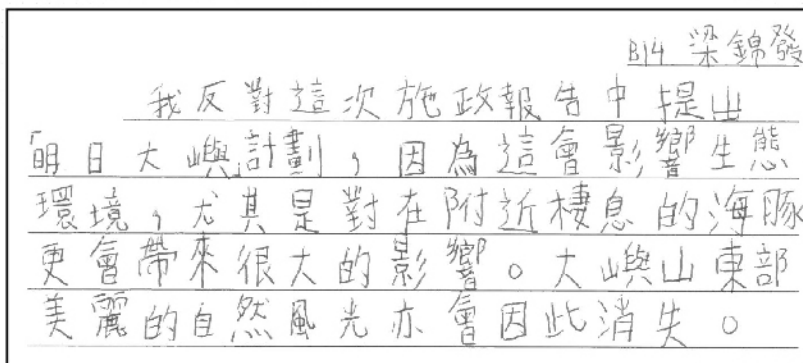 B14 梁錦發
我反對這次施政報告中提出
「明日大嶼」計劃，因為這會影響生態
環境，尤其是對在附近棲息的海豚
更會帶來很大的影響。大嶼山東部
美麗的自然風光亦會因此消失。